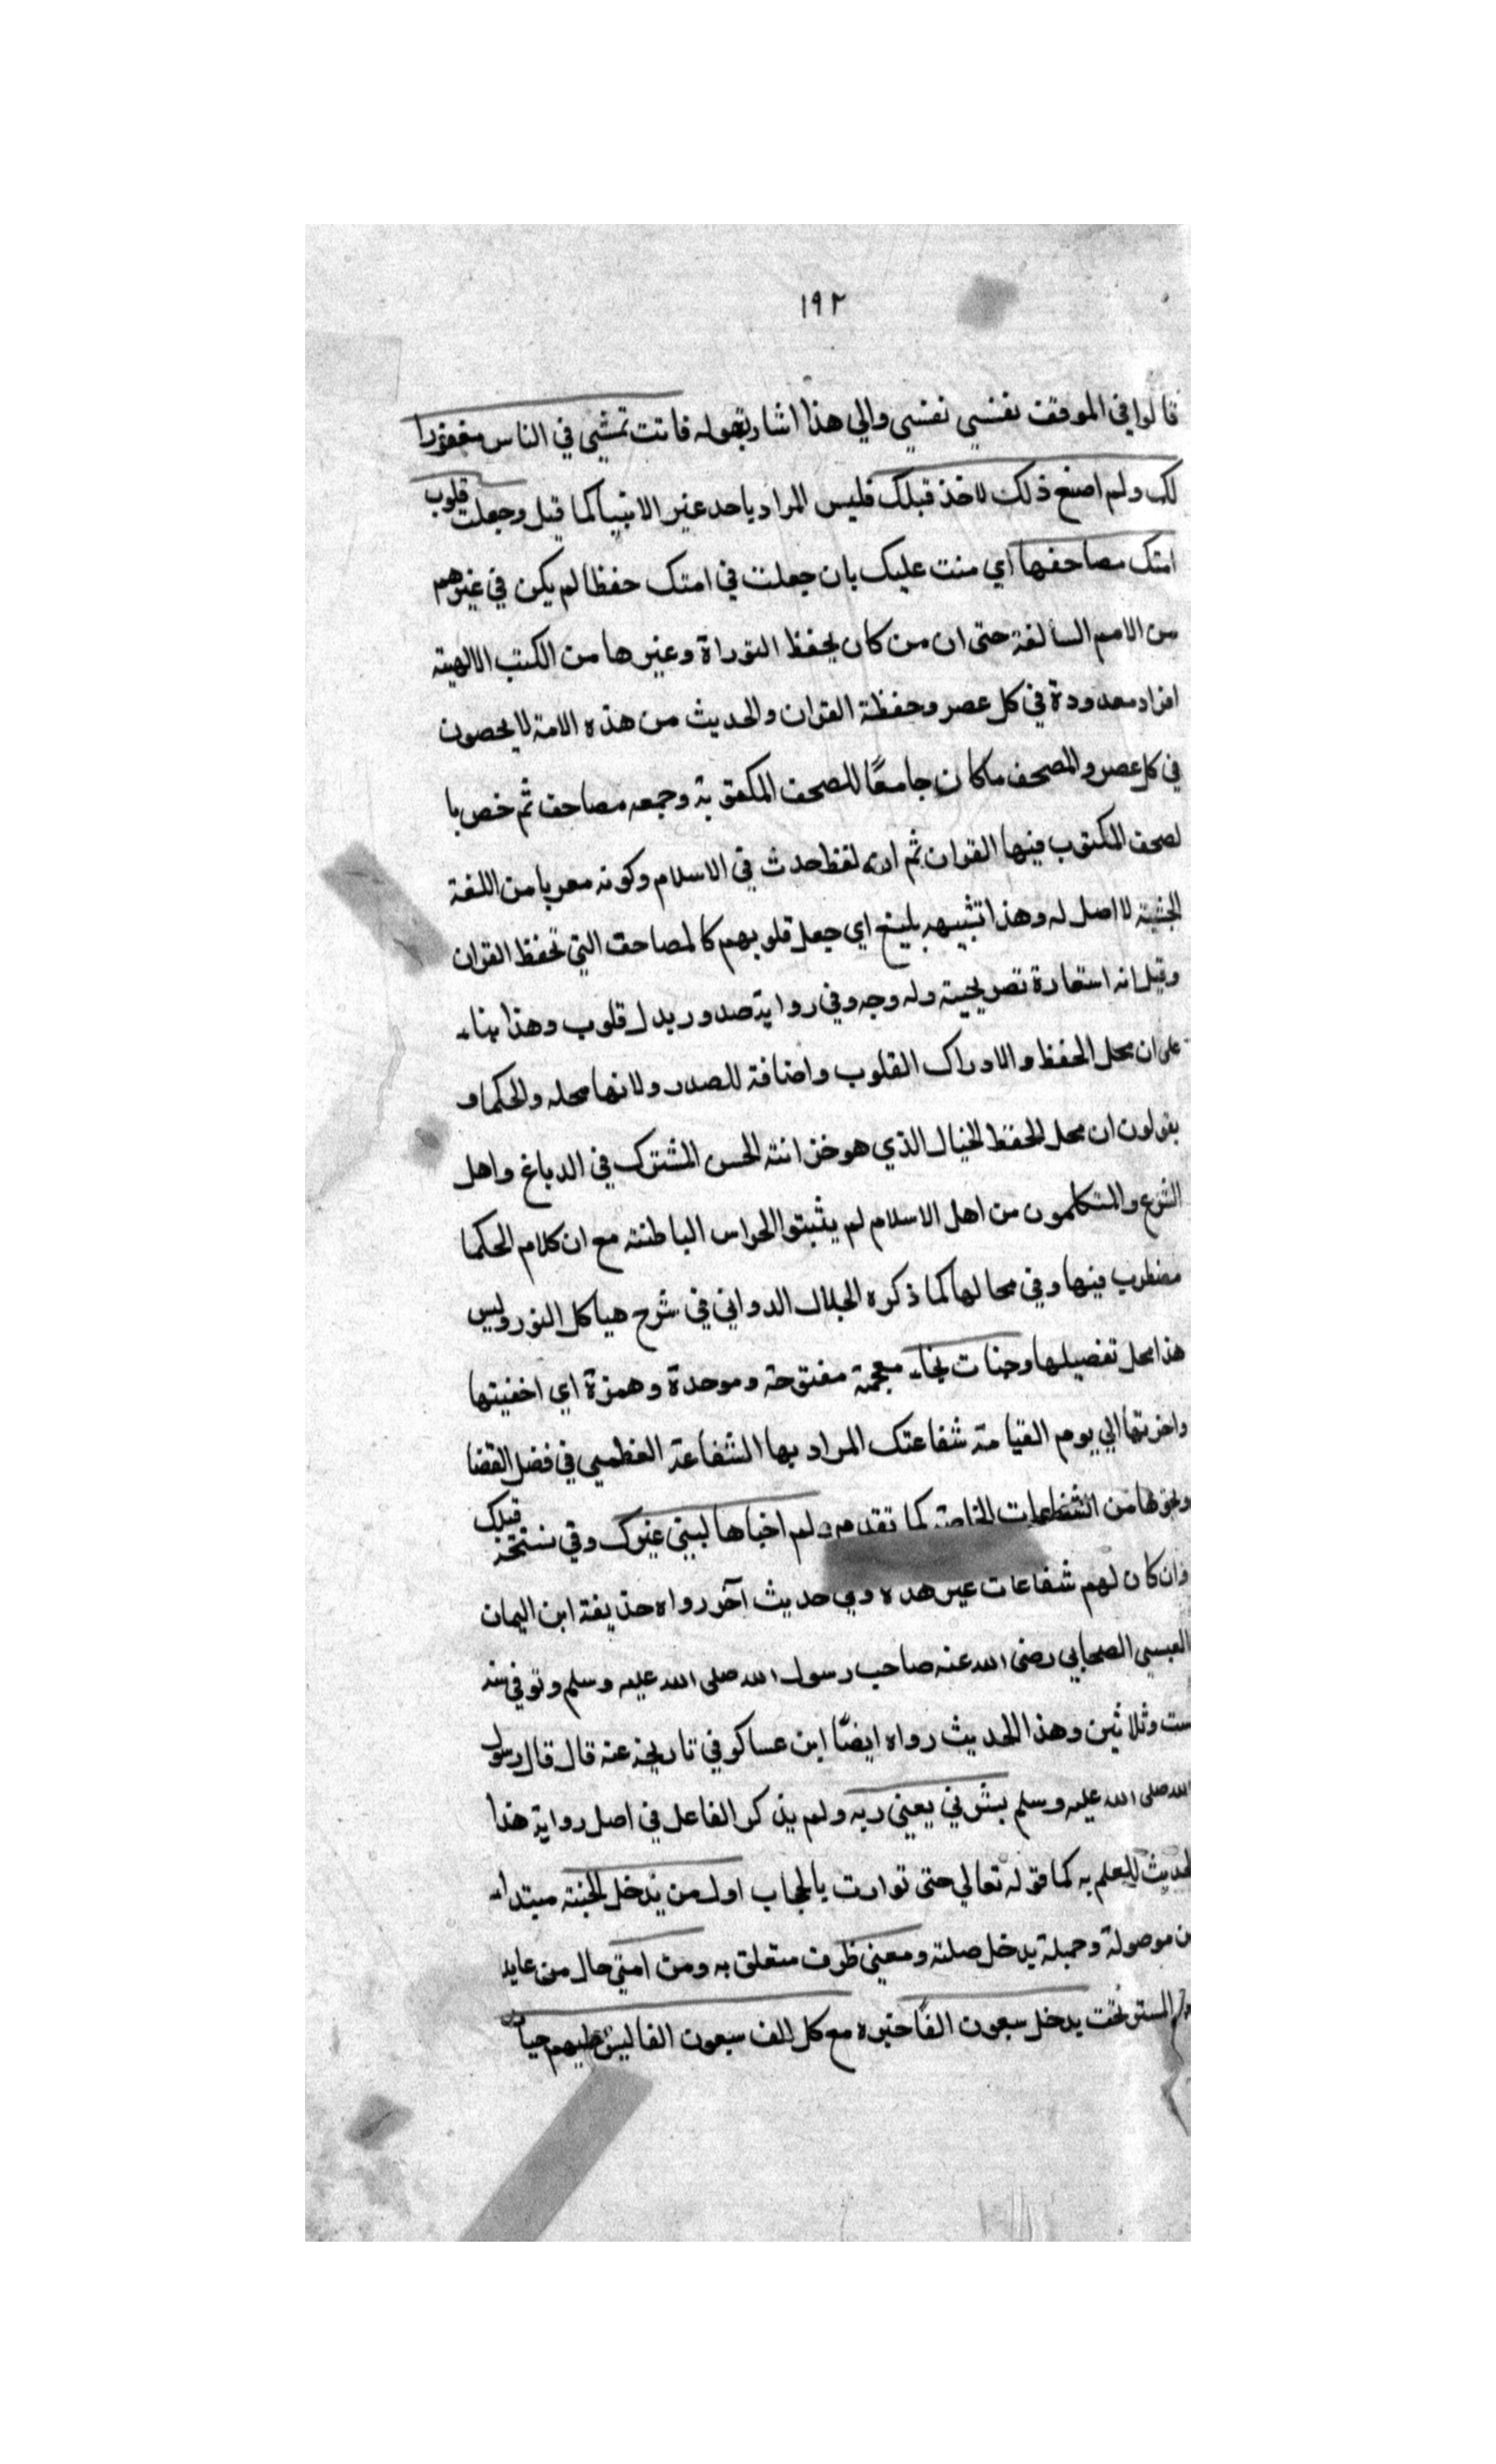 ١٩٢
قالوا في الموقف نفسي نفسي والي هذا اشار بقوله فانت تمشي في الناس مغفورا
لك ولم اصنع ذلك لاحد قبلك فليس المراد باحد غير الانبيا كما قيل وجعلت قلوب
امتك مصاحفها اي مننت عليك بان جعلت في امتك حفظا لم يكن في غيرهم
من الامم السالفة حتى ان من كان يحفظ التوراة وغيرها من الكتب الالهية
افراد معدودة في كل عصر وحفظة القران والحديث من هذه الامة لا يحصون
في كل عصر والمصحف ما كان جامعًا للصحف المكتوبة وجمعه مصاحف ثم خص با
لصحف المكتوب فيها القران ثم انه لفظ حدث في الاسلام وكونه معربا من اللغة
الحبشية لا اصل له وهذا تشبيه بليغ اي جعل قلوبهم كالمصاحف التي تحفظ القران
وقيل انه استعارة تصريحية وله وجه وفي رواية صدور بدل قلوب وهذا بناء
على ان محل الحفظ والادراك القلوب واضافة للصدر ولانها محله والحكماء
يقولون ان محل الحفظ الخيال الذي هو خزانة الحس المشترك في الدماغ واهل
الشرع والمتكلمون من اهل الاسلام لم يثبتوا الحواس الباطنة مع ان كلام الحكما
مضطرب فيها وفي محالها كما ذكره الجلال الدواني في شرح هياكل النور وليس
هذا محل تفصيلها وخبات بخاء معجمة مفتوحة وموحدة وهمزة اي اخفيتها
واخرتها الي يوم القيامة شفاعتك المراد بها الشفاعة العظمي في فصل القضا
ونحوها من الشفاعات الخاصة كما تقدم ولم اخباها لنبي غيرك وفي نسخة قبلك
وان كان لهم شفاعات غير هذه وفي حديث آخر رواه حذيفة ابن اليمان
العبسي الصحابي رضي الله عنه صاحب رسول الله صلى الله عليه وسلم وتوفي سنة
ست وثلاثين وهذا الحديث رواه ايضًا ابن عساكر في تاريخه عنه قال قال رسول
الله صلى الله عليه وسلم بشرني يعني ربه ولم يذكر الفاعل في اصل رواية هذا
الحديث للعلم به كما قوله تعالي حتى توارت بالحجاب اول من يدخل الجنة مبتداء
من موصولة وجملة يدخل صلته ومعي ظرف متعلق به ومن امتي حال من عايد
المستتر تحت يدخل سبعون الفًا خبره مع كل الف سبعون الفا ليس عليهم حساب